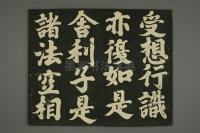 受想行識
亦復如是
舍利子是
諸法空相